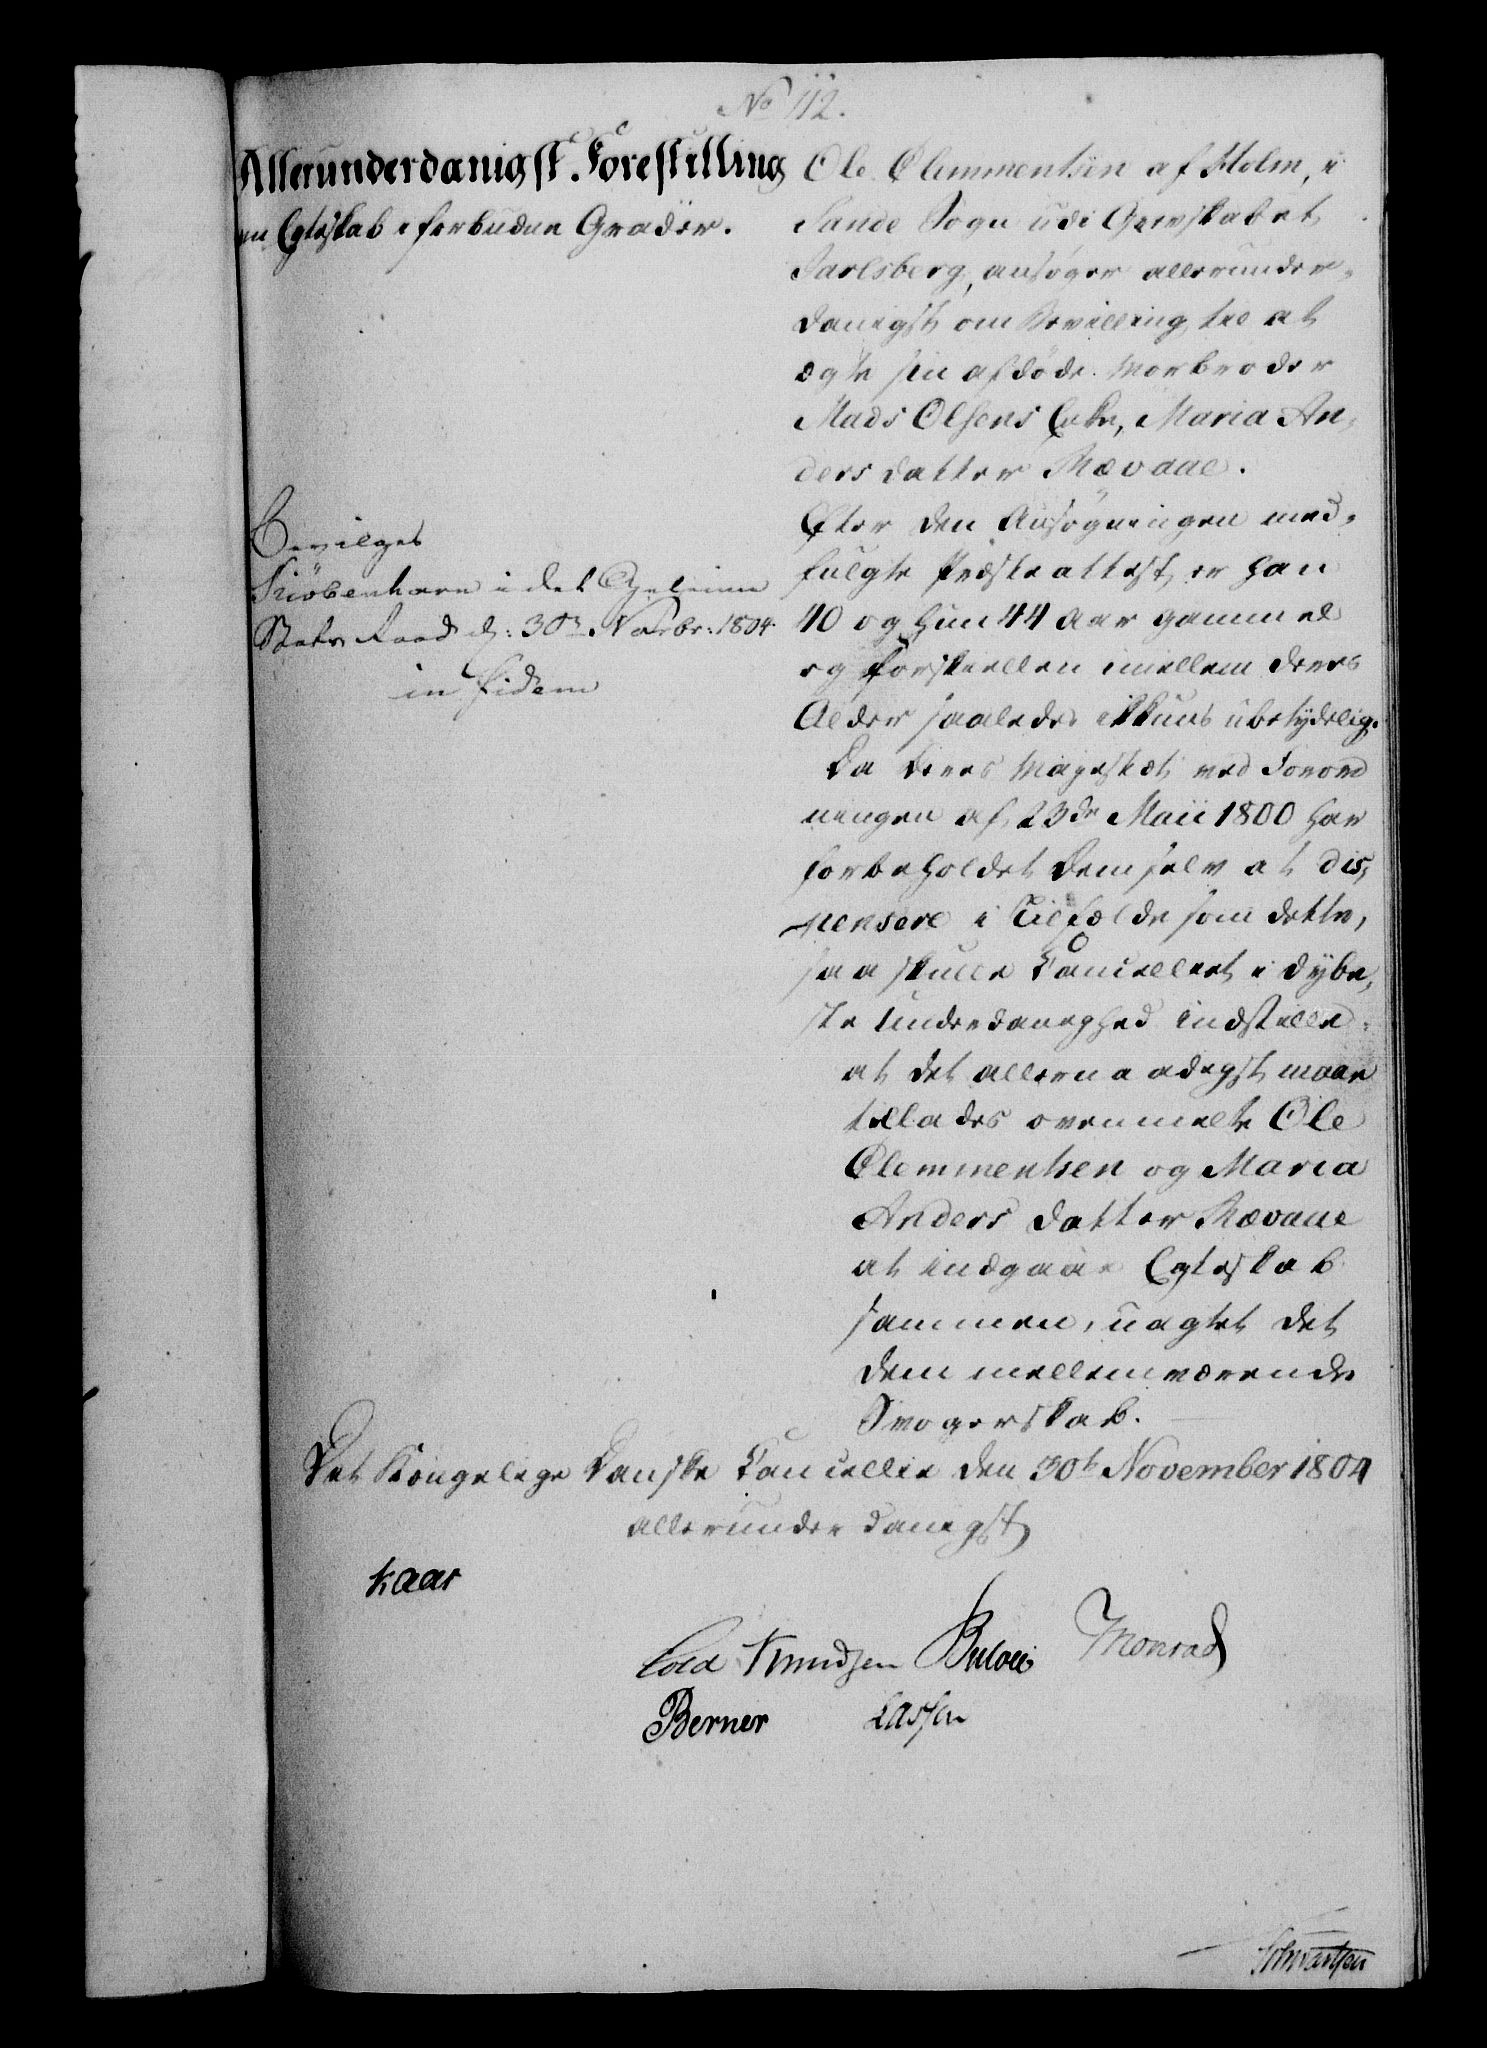 No 112.
Allerunderdanigst Forestilling
om Egteskab i forbudne Grader.
Bevilges
Kiöbenhavn i det Geheime
Stats Raad d: 30te Novbr: 1804.
in fidem
Ole Clemmentsen af Holm, i
Sande Sogn udi Grevskabet
Jarlsberg, ansøger allerunder-
danigst om Bevilling til at
ægte sin afdøde Morbroder
Mads Olsens Enke, Maria An-
ders datter Rævaae.
Efter den Ansøgningen med-
fulgte Præsteattest, er han
40 og hun 44 Aar gammel
og Forskiellen imellem deres
Alder saaledes ikkuns ubetydelig.
Da Deres Majestæt ved Forord
ningen af 23de Maii 1800 har
forbeholdet Dem selv at dis-
pensere i Tilfælde som dette,
saa skulle Cancelliet i dybe-
ste Underdanighed indstille:
at det allernaadigst maae
tillades ovenmelte Ole
Clemmentsen og Maria
Anders datter Rævaae
at indgaae Egteskab
sammen, uagtet det
dem mellemværende
Svogerskab.
Det Kongelige Danske Cancellie den 30te November 1804
allerunderdanigst
Kaas
Cold Knudsen Bülow Monrad
Berner Lassen
Schvartsen